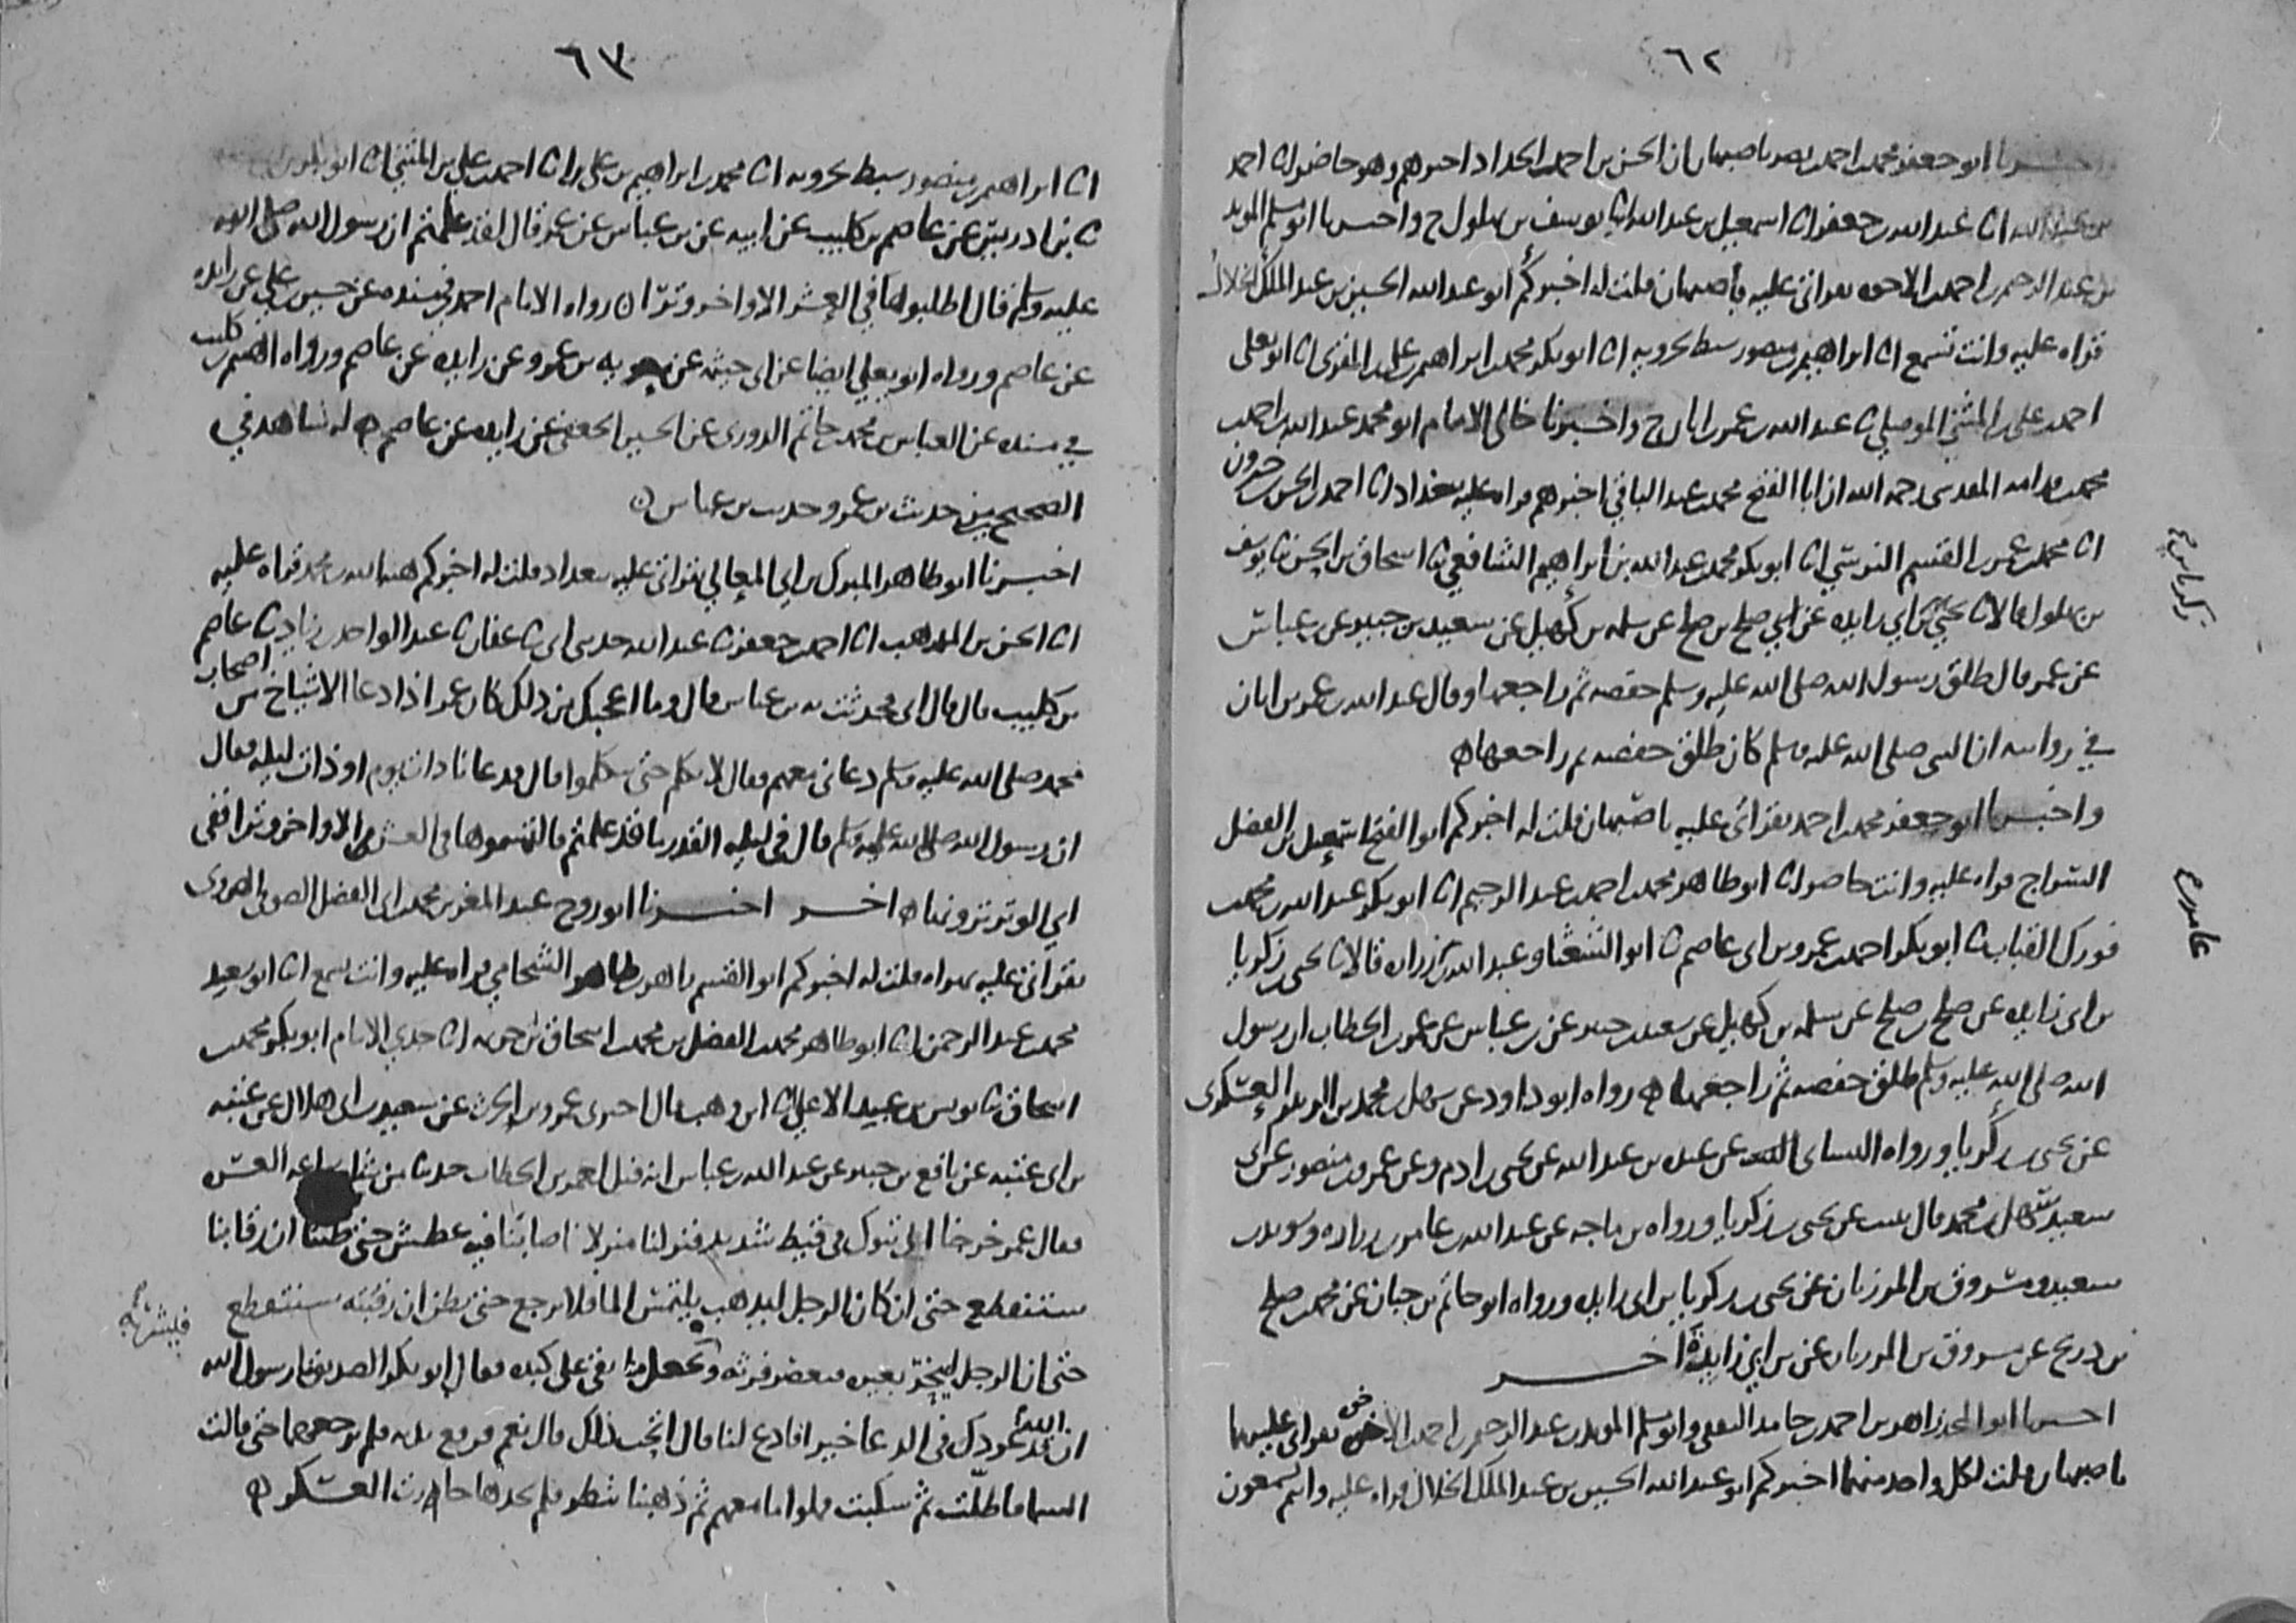 ٦٢
اخبرنا ابو جعفر محمد بن احمد بن نصر باصبهان ان الحسن بن احمد الحداد اخبرهم وهو حاضر انا احمد
بن عبد الله انا عبد الله بن جعفر انا اسمعيل بن عبد الله ثنا يوسف بن بهلول ح واخبرنا ابو مسلم المويد
بن عبد الرحيم بن احمد بن الاخوه بقراتي عليه باصبهان قلت له اخبركم ابو عبد الله الحسين بن عبد الملك الخلال
قراه عليه وانت تسمع انا ابراهيم بن منصور سبط بحرويه انا ابو بكر محمد بن ابراهيم بن علي بن المقري انا ابو يعلى
احمد بن علي بن المثنى الموصلي ثنا عبد الله بن عمر بن ابان ح واخبرنا خالي الامام ابو محمد عبد الله بن احمد بن
محمد بن قدامه المقدسي رحمه الله ان ابا الفتح محمد بن عبد الباقي اخبرهم قراه عليه ببغداد انا احمد بن الحسن بن خيرون
انا محمد بن عمر بن القسم النرسي انا ابو بكر محمد بن عبد الله بن ابراهيم الشافعي ثنا اسحاق بن الحسن ثنا يوسف
بن بهلول قالا ثنا يحيى بن ابي زايده عن صلح بن صلح عن سلمه بن كهيل عن سعيد بن جبير عن بن عباس
زكريا بن
عن عمر قال طلق رسول الله صلى الله عليه وسلم حفصه ثم راجعها وقال عبد الله بن عمر بن ابان
في روايته ان النبي صلى الله عليه وسلم كان طلق حفصه ثم راجعها ه
واخبرنا ابو جعفر محمد بن احمد بقراتي عليه باصبهان قلت له اخبركم ابو الفتح اسمعيل بن الفضل
السراج قراه عليه وانت حاضر انا ابو طاهر محمد بن احمد بن عبد الرحيم انا ابو بكر عبد الله بن محمد بن
فورك القباب ثنا ابو بكر احمد بن عمرو بن ابي عاصم ثنا ابو الشعثا وعبد الله بن زراره قالا ثنا يحيى بن زكريا
عامر بن
بن ابي زايده عن صلح بن صلح عن سلمه بن كهيل عن سعيد بن جبير عن بن عباس عن عمر بن الخطاب ان رسول
الله صلى الله عليه وسلم طلق حفصه ثم راجعها ه رواه ابو داود عن سهل بن محمد بن الزبير العسكري
عن يحيى بن زكريا ورواه النساى عن عبده بن عبد الله عن يحيى بن ادم وعن عمرو بن منصور عن
سعيد سهل بن محمد قال عن يحيى بن زكريا ورواه بن ماجه عن عبد الله بن عامر بن زراره وسويد بن
سعيد ومسروق بن المرزبان عن يحيى بن زكريا بن ابي زايده ورواه ابو حاتم بن حبان عن محمد بن صلح
بن ذريح عن مسروق بن المرزبان عن بن ابي زايدة ه اخر
اخبرنا ابو المجد زاهر بن احمد بن حامد الثقفي وابو مسلم المويد بن عبد الرحيم بن احمد بن الاخوه بقراتي عليهما
باصبهان قلت لكل واحد منهما اخبركم ابو عبد الله الحسين بن عبد الملك الخلال قراه عليه وانتم تسمعون
٦٣
انا ابراهيم بن منصور سبط بحرويه انا محمد بن ابراهيم بن علي انا احمد بن علي بن المثنى ثنا ابو بكر
ثنا بن ادريس عن عاصم بن كليب عن ابيه عن بن عباس عن عمر قال لقد علمتم ان رسول الله صلى الله
عليه وسلم قال اطلبوها في العشر الاواخر وترا ه رواه الامام احمد في مسنده عن حسين بن علي عن زايده
عن عاصم ورواه ابو يعلى ايضا عن ابي خيثمه عن معويه بن عمرو عن زايده عن عاصم ورواه الهيثم بن كليب
في مسنده عن العباس بن محمد بن حاتم الدوري عن الحسين الجعفي عن زايده عن عاصم ه له شاهد في
الصحيحين من حديث بن عمر وحديث بن عباس ه
اخبرنا ابو طاهر المبارك بن ابي المعالي بقراتي عليه ببغداد قلت له اخبركم هبه الله بن محمد قراه عليه
انا الحسن بن المذهب انا احمد بن جعفر ثنا عبد الله حدثني ابي ثنا عفان ثنا عبد الواحد بن زياد ثنا عاصم
بن كليب قال قال ابي فحدثت به بن عباس قال وما اعجبك من ذلك كان عمر اذا دعا الاشياخ من اصحاب
محمد صلى الله عليه وسلم دعاني معهم فقال لا تتكلم حتى يتكلموا قال فدعانا ذات يوم او ذات ليله فقال
ان رسول الله صلى الله عليه وسلم قال في ليله القدر ما قد علمتم فالتمسوها في العشر الاواخر وترا ففي
اي الوتر ترونها ه اخر اخبرنا ابو روح عبد المعز بن محمد بن ابي الفضل الصوفي الهروي
بقراتي عليه بهراه قلت له اخبركم ابو القسم زاهر بن طاهر الشحامي قراه عليه وانت تسمع انا ابو سعيد
محمد بن عبد الرحمن انا ابو طاهر محمد بن الفضل بن محمد بن اسحاق بن خزيمه انا جدي الامام ابو بكر محمد بن
اسحاق ثنا يونس بن عبد الاعلى انا ابن وهب قال اخبرني عمرو بن الحرث عن سعيد بن ابي هلال عن عتبه
بن ابي عتبه عن نافع بن جبير عن عبد الله بن عباس انه قيل لعمر بن الخطاب حدثنا من شان ساعه العسره
فقال عمر خرجنا الى تبوك في قيظ شديد فنزلنا منزلا اصابنا فيه عطش حتى ظننا ان رقابنا
ستنقطع حتى ان كان الرجل ليذهب يلتمس الما فلا يرجع حتى يظن ان رقبته ستنقطع
حتى ان الرجل لينحر بعيره فيعصر فرثه فيشربه ويجعل ما بقي على كبده فقال ابو بكر الصديق يا رسول الله
ان الله قد عودك في الدعا خيرا فادع لنا قال اتحب ذلك قال نعم فرفع يده فلم يرجعهما حتى قالت
السما فاظلت ثم سكبت فملوا ما معهم ثم ذهبنا ننظر فلم نجدها جاوزت العسكر ه